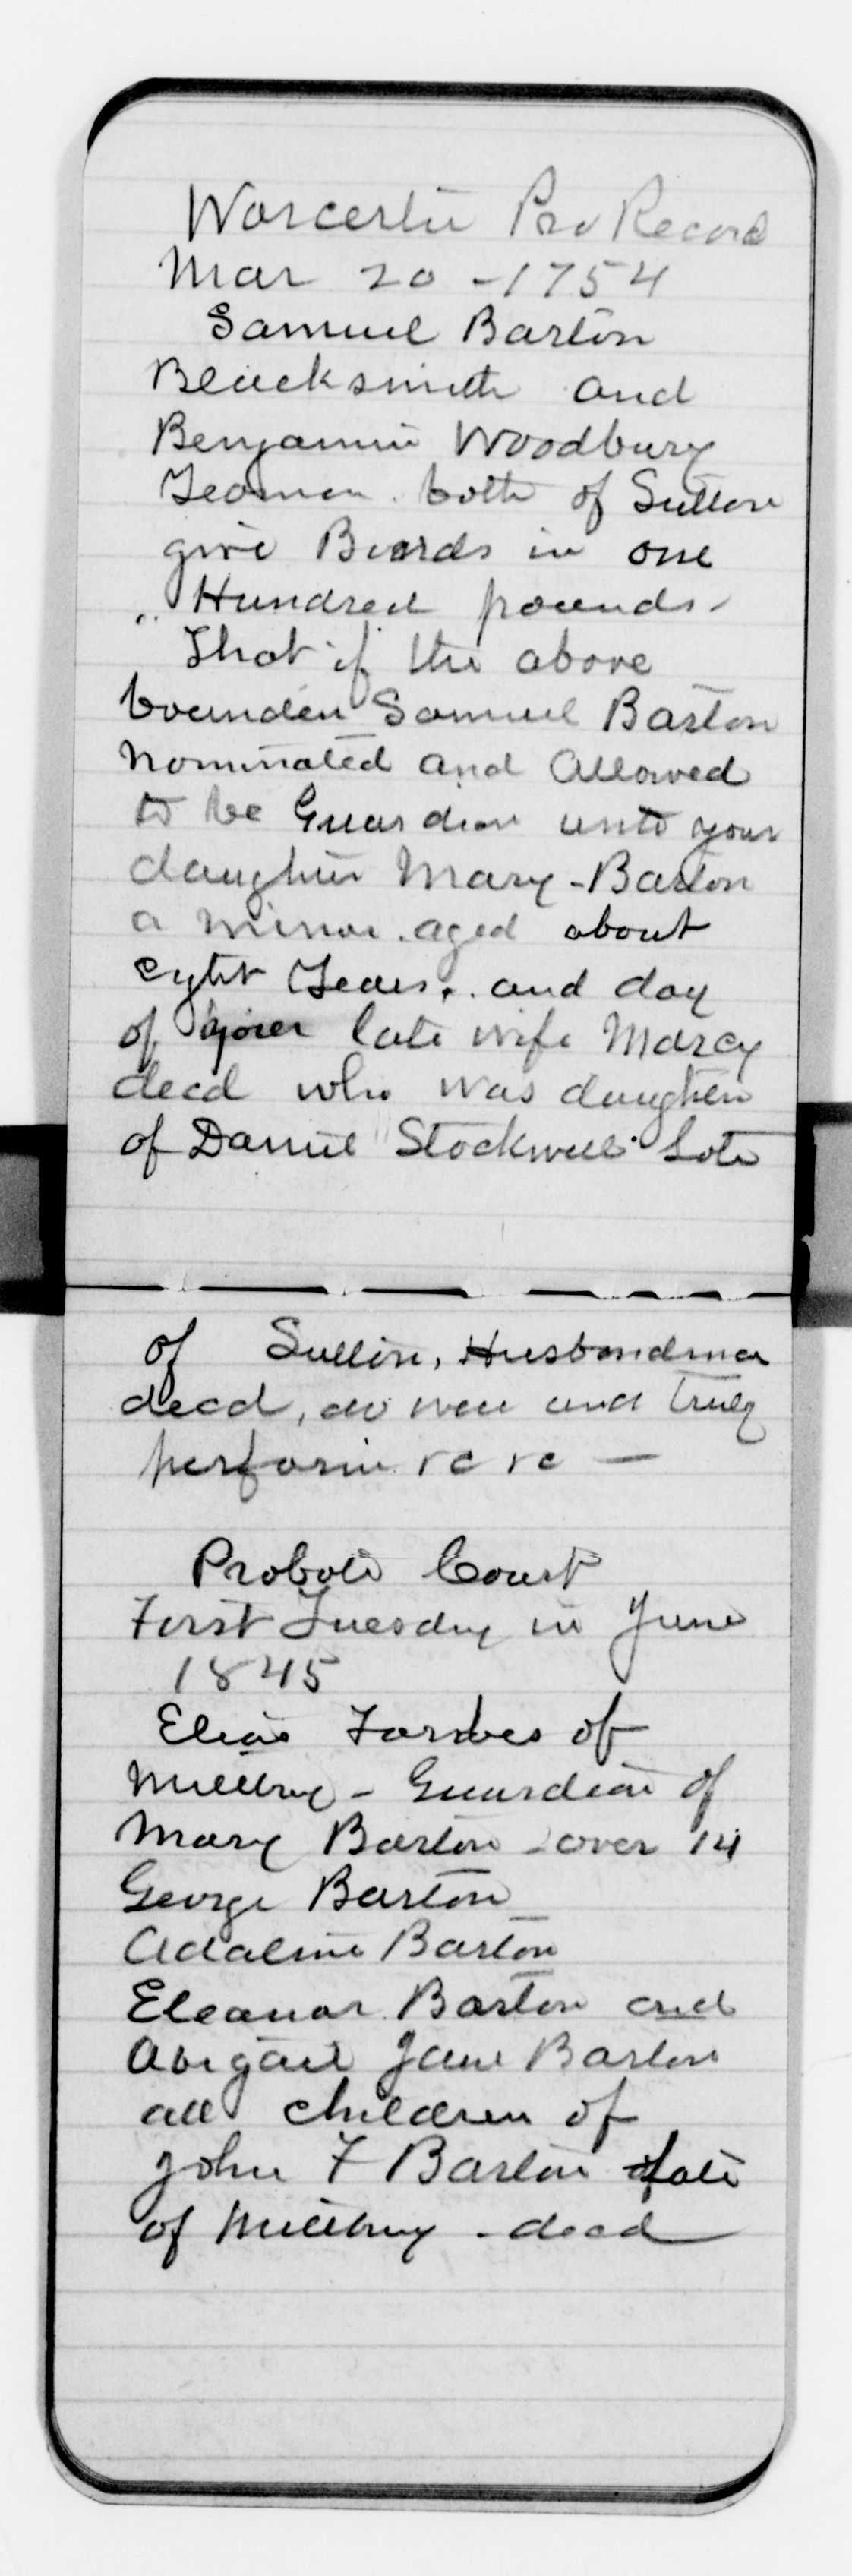 Worcester Pro Record
Mar 20 - 1754
Samuel Barton
Blacksmith and
Benjamin Woodbury
Yeoman both of Sutton
give Bonds in one
Hundred pounds -
That if the above
bounden Samuel Barton
nominated and allowed
to be Guardian unto your
daughter Mary - Barton
a minor aged about
eyht Years. and day
of your late wife Marcy
decd who was daughter
of Daniel Stockwell late
of Sutton, Husbandman
decd, do well and truly
perform &c &c —
Probate Court
First Tuesday in June
1845
Elias Forbes of
Millbury - Guardian of
Mary Barton - over 14
George Barton
Adaline Barton
Eleanor Barton and
Abigail Jane Barton
all children of
John F Barton late
of Millbury - decd